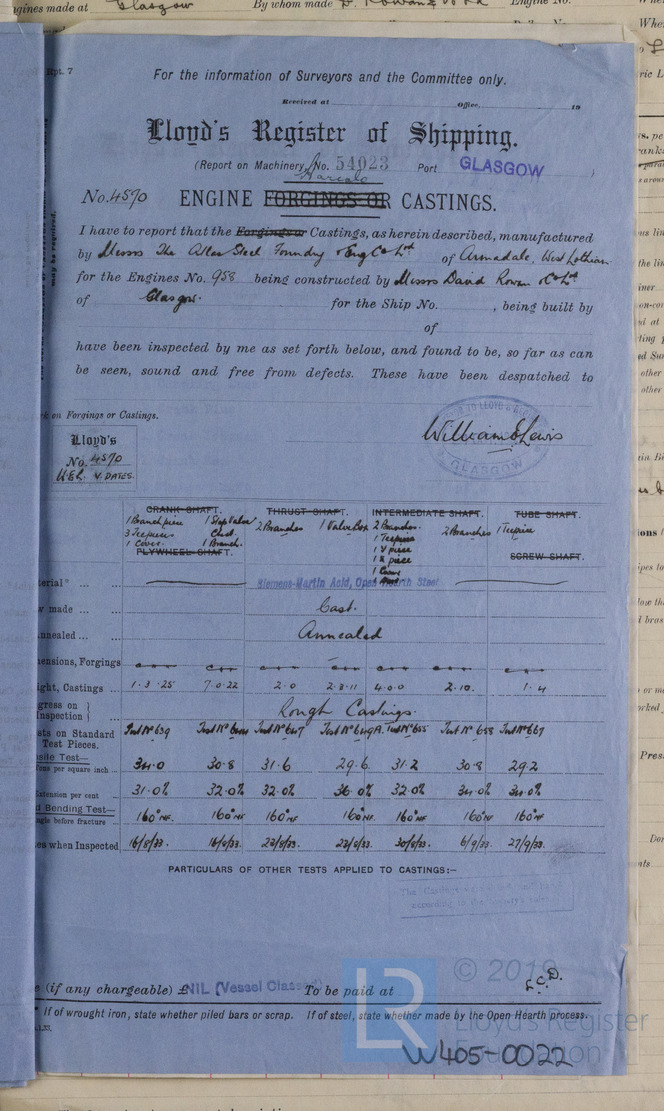 gines made at Glasgow By whom made D. Rowan & Co Ld Engine No.
Rpt. 7
For the information of Surveyors and the Committee only.
Received at Office, 19
Lloyd's Register of Shipping.
(Report on Machinery, No. 54023 Port GLASGOW )
No. 4570 ENGINE FORGINGS OR CASTINGS.
I have to report that the Forgings or Castings, as herein described, manufactured
by Messrs The Atlas Steel Foundry & Eng Co Ltd of Armadale, West Lothian
for the Engines No. 958 being constructed by Messrs David Rowan & Co Ltd
of Glasgow. for the Ship No. , being built by
of
have been inspected by me as set forth below, and found to be, so far as can
be seen, sound and free from defects. These have been despatched to
may be required.
k on Forgings or Castings.
Lloyd's
No. 4570
W.E.L. & DATES.
William E Lewis
GLASGOW
CRANK SHAFT. THRUST SHAFT. INTERMEDIATE SHAFT. TUBE SHAFT.
1 Branch piece 1 Stop Valve 2 Branches 1 Valve Box 2 Branches 2 Branches 1 Teepiece
3 Teepieces Chest. 1 Teepiece
1 Cover 1 Branch. 1 Y piece
FLYWHEEL SHAFT. SCREW SHAFT.
1 Cover
erial* Siemens-Martin Acid, Open Hearth Steel
w made Cast.
nnealed Annealed
ensions, Forgings
ght, Castings 1-3-25 7-0-22 2-0 2-3-11 4-0-0 2-10. 1-4
gress on
Inspection Rough Castings.
sts on Standard Test No 639 Test No Test No 647 Test No 649A. Test No 655 Test No 658 Test No 667
Test Pieces.
sile Test—
Tons per square inch 34.0 30.8 31.6 29.6 31.2 30.8 29.2
Extension per cent 31.0% 32.0% 32.0% 36.0% 32.0% 34.0% 34.0%
d Bending Test—
gle before fracture 160° NF. 160° NF. 160° NF 160° NF. 160° NF 160° NF 160° NF
es when Inspected 16/8/33. 16/8/33. 23/8/33. 23/8/33. 30/8/33. 6/9/33. 27/9/33.
PARTICULARS OF OTHER TESTS APPLIED TO CASTINGS:—
The Castings
according to the Society's Rules
e (if any chargeable) £ NIL (Vessel Classed) To be paid at
L.C.D.
© 2019
* If of wrought iron, state whether piled bars or scrap. If of steel, state whether made by the Open Hearth process.
LR
Lloyd's Register
Foundation
W405-0022